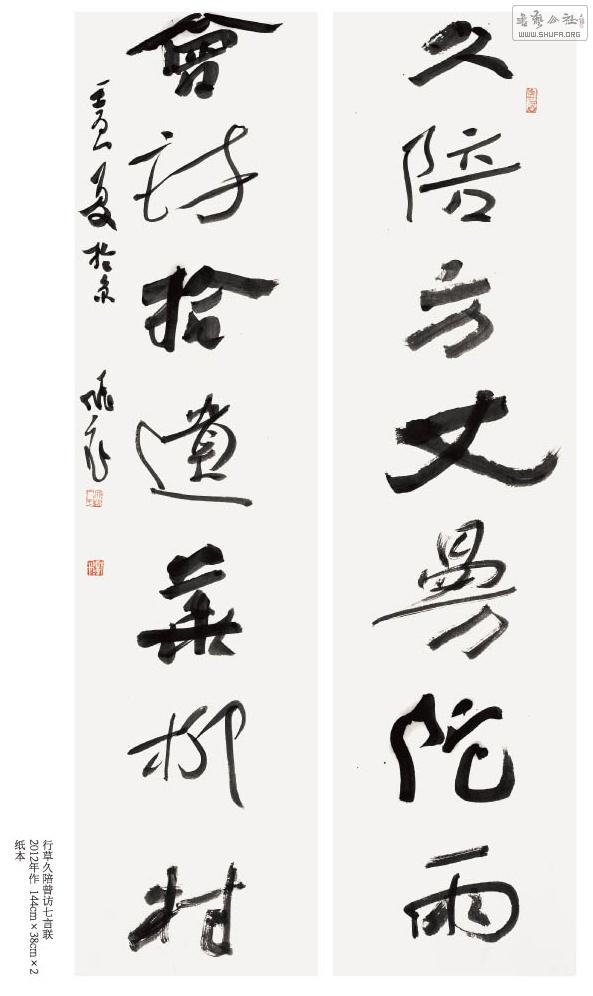 书艺公社
WWW.SHUFA.ORG
久陪方丈曼陀雨
曾訪拾遺華柳村
壬辰夏於京
行草久陪曾访七言联
2012年作 144cm×38cm×2
纸本